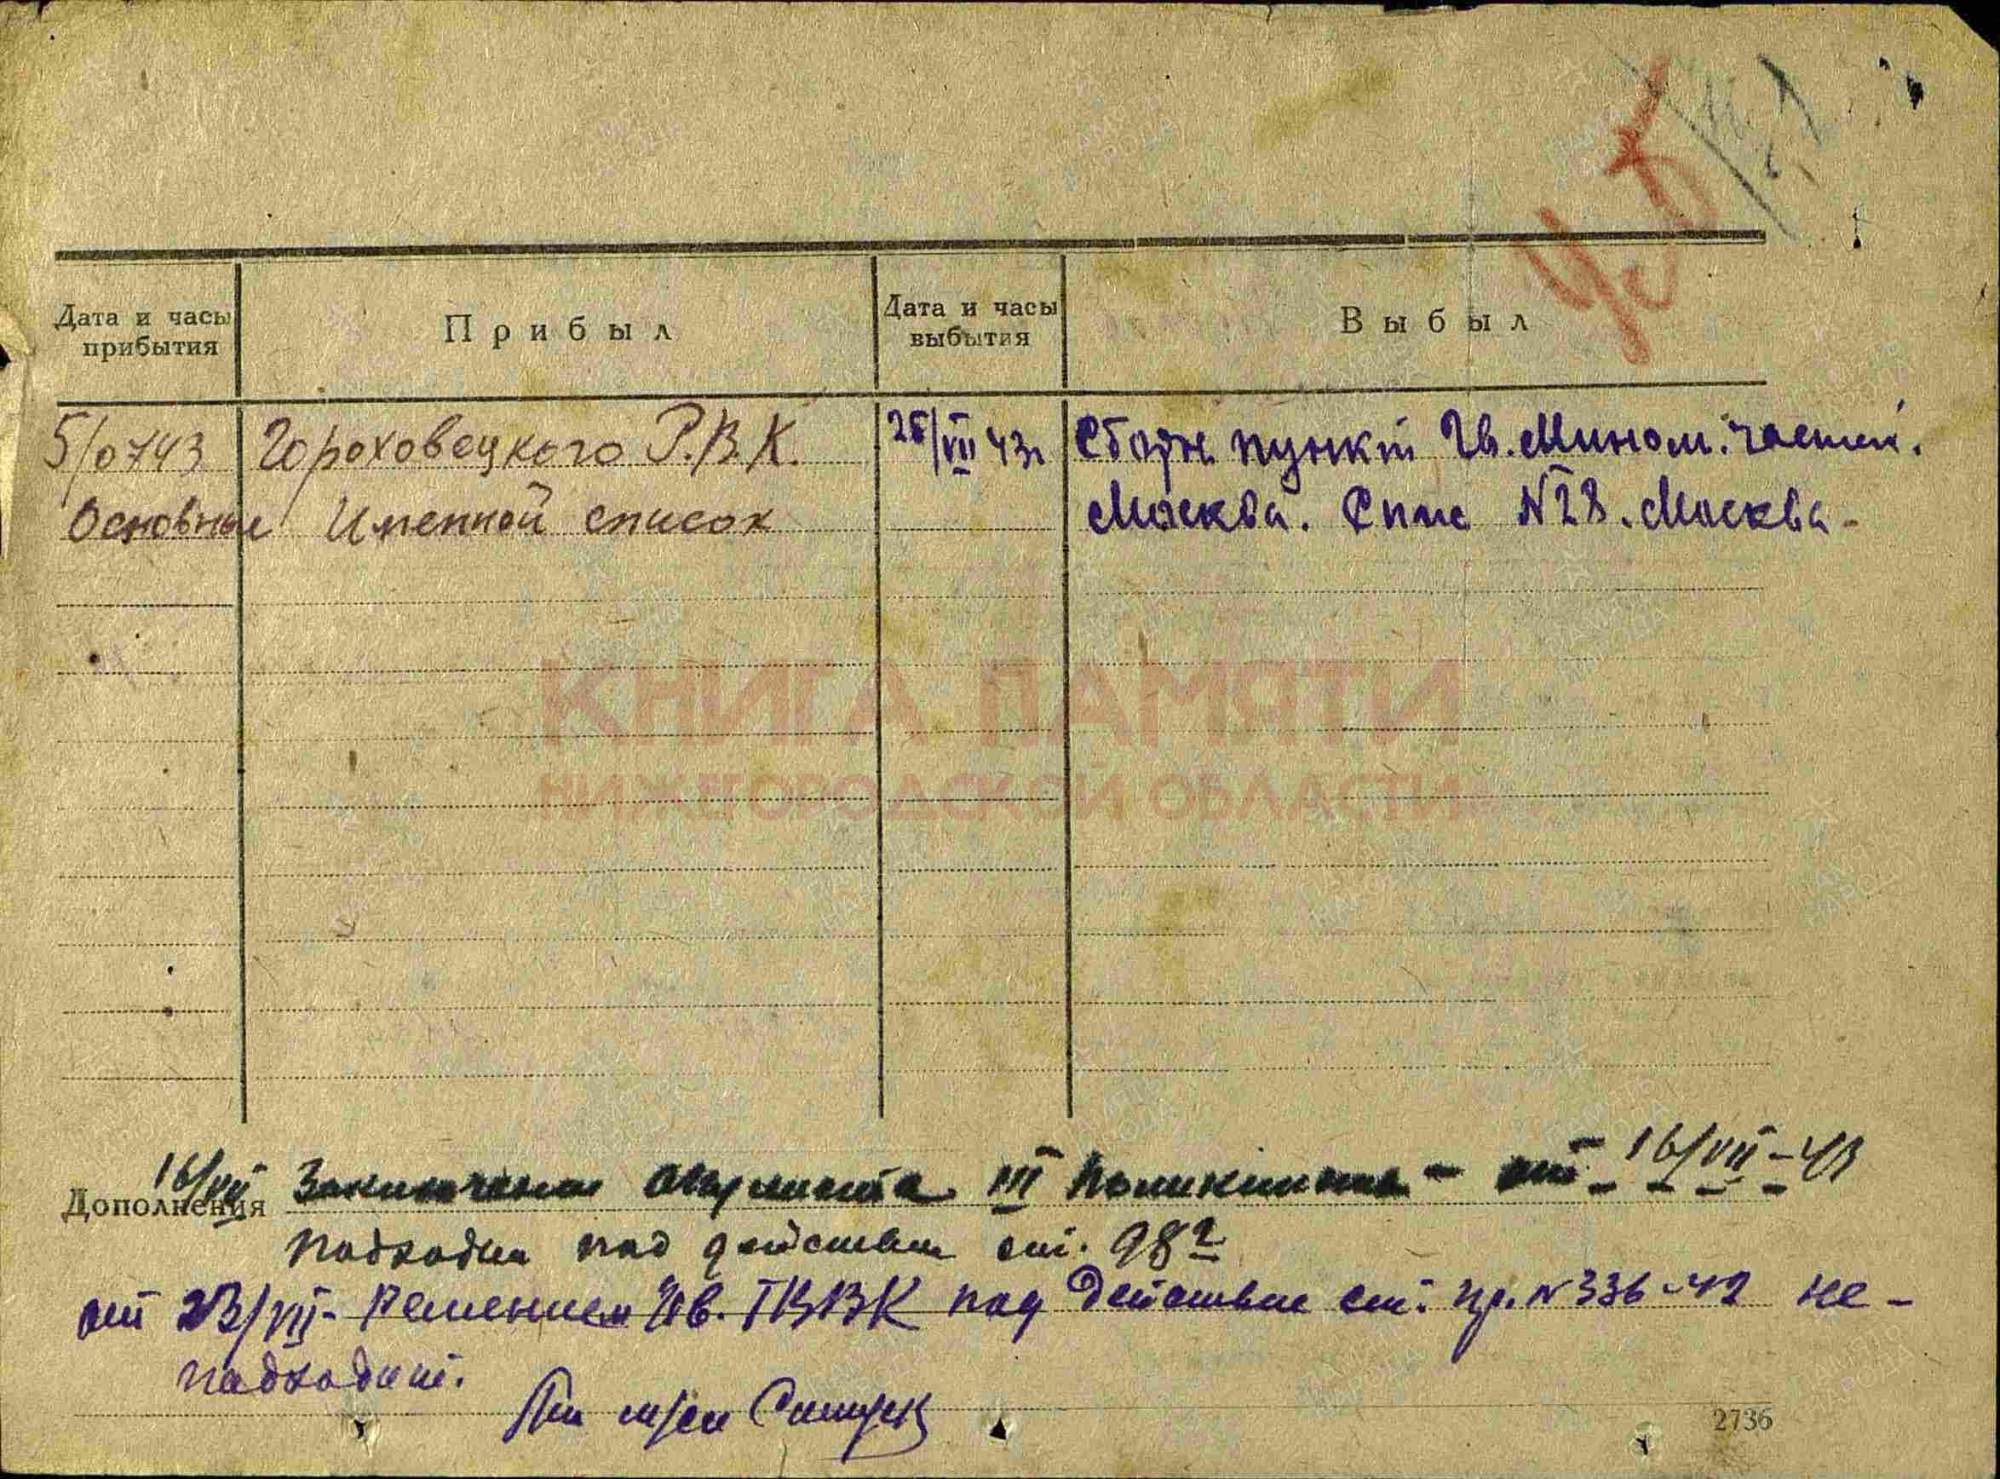 Уб
Дата и часы прибытия
Прибыл
Дата и часы выбытия
Выбыл
5/0743 Гороховецкого Р.В.К.
Основные Именной список
25/VII 43г
Сборн. пункт Гв. Мином. частей.
Москва. Спис №28. Москва-
КНИГА ПАМЯТИ
НИЖЕГОРОДСКОЙ ОБЛАСТИ
Дополнения
16/VII Заключение окулиста III Поликлиника - от - 16/VII-43
подходит под действие ст. 98г
от 23/VII- Решением Ив. ГВВК под действие ст. пр. №336-42 не-
подходит.
2736